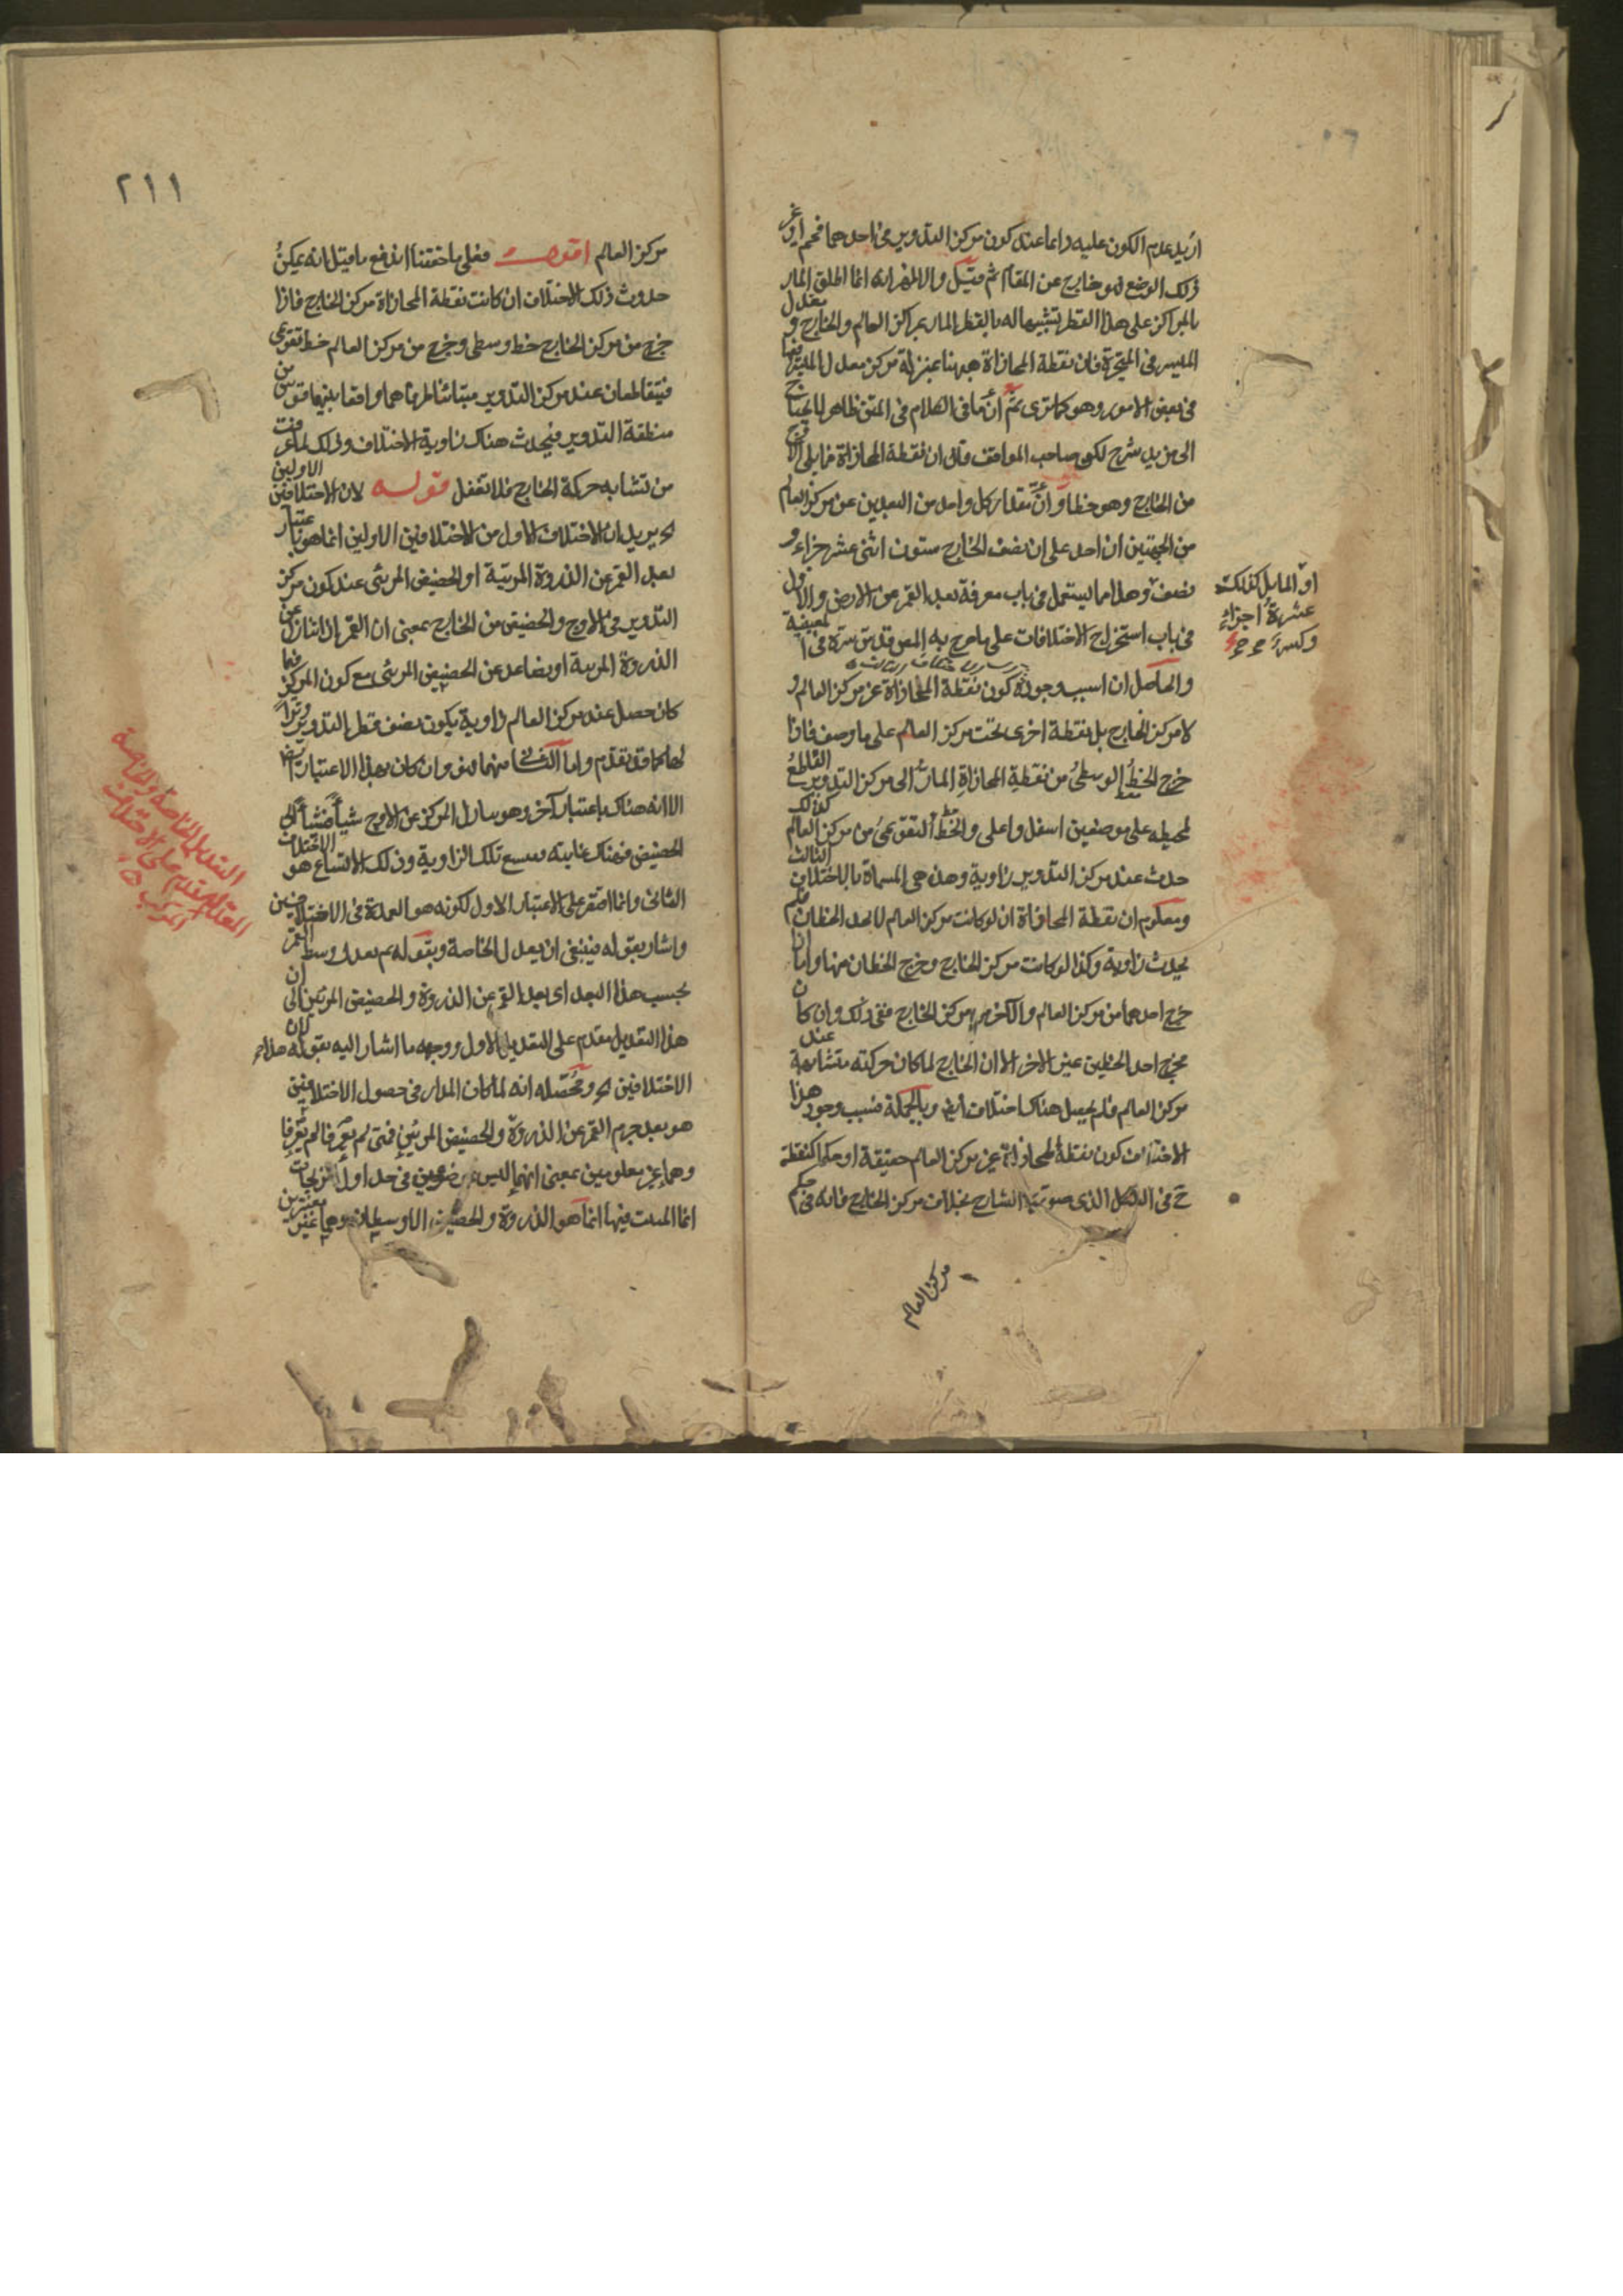 اريد عدم الكون عليه دائما عند كون مركز التدوير في احدهما فحم او غير
ذلك الوضع فهو خارج عن المقام ثم قيل والاظهر انه انما اطلق المار
بالمراكز على هذا القطر تشبيها له بالقطر المار بمراكز العالم والخارج و معدل
المسير في المتحيرة فان نقطة المحاذاة ههنا بمنزلة مركز معدل المسير فيها
في بعض الامور وهو كما ترى ثم ان ما في الكلام في المتن ظاهر لا يحتاج
الى مزيد شرح لكن صاحب المواقف قال ان نقطة المحاذاة مما يلى الاوج
من الخارج وهو خطا وان مقدار كل واحد من البعدين عن مركز العالم
من الجهتين ان احد على ان نصف الخارج ستون اثنى عشر جزاء و
نصف وهذا مما يستعمل في باب معرفة بعد القمر عن الارض والاول
في باب استخراج الاختلافات على ما صرح به المص قدس سره في
والحاصل ان سبب وجوده كون نقطة المحاذاة غير مركز العالم و
لا مركز الخارج بل نقطة اخرى تحت مركز العالم على ما وصف فاذا
خرج الخط الوسطى من نقطة المحاذاة المار الى مركز التدوير القاطع
لمحيطه على موضعين اسفل واعلى والخط التقويمى من مركز العالم كذلك
حدث عند مركز التدوير زاوية وهذه هي المسماة بالاختلاف الثالث
ومعلوم ان نقطة المحاذاة ان لو كانت مركز العالم لاتحد الخطان فلم
يحدث زاوية وكذا لو كانت مركز الخارج وخرج الخطان منها واما ان
خرج احدهما من مركز العالم والآخر من مركز الخارج ففى ذلك وان كان
مخرج احد الخطين غير الاخر الا ان الخارج لما كان حركته متشابهة عند
مركز العالم فلم يحصل هناك اختلاف ايضا وبالجملة فسبب وجود هذا
الاختلاف كون نقطة المحاذاة غير مركز العالم حقيقة او حكما كنقطة
ح في الشكل الذى صوره الشارح بخلاف مركز الخارج فانه في حكم
مركز العالم
او المايل كذلك
عشرة اجزاء
وكسر
٢١١
مركز العالم اقول فعلى ما حققنا اندفع ما قيل انه يمكن
حدوث ذلك الاختلاف ان كانت نقطة المحاذاة مركز الخارج فاذا
خرج من مركز الخارج خط وسطى وخرج من مركز العالم خط تقويمى
فيتقاطعان عند مركز التدوير متباينا طرفاهما واقعا بينهما قوس من
منطقة التدوير فيحدث هناك زاوية الاختلاف وذلك لما عرفت
من تشابه حركة الخارج فلا تغفل قوله لان الاختلافين الاولين
اه يريد ان الاختلاف الاول من الاختلافين الاولين انما هو باعتبار
بعد القمر عن الذروة المرئية او الحضيض المرئى عند كون مركز
التدوير في الاوج والحضيض من الخارج بمعنى ان القمر اذا تنازل عن
الذروة المرئية او تصاعد عن الحضيض المرئى مع كون المركز فيما
كان حصل عند مركز العالم زاوية يكون نصف قطر التدوير وترا
لها كما قد تقدم واما الثانى منهما فهو وان كان بهذا الاعتبار ايضا
الا انه هناك باعتبار آخر وهو سار المركز عن الاوج شيأ فشيأ الى
الحضيض فهناك غايته يتسع تلك الزاوية وذلك الاتساع هو الاختلاف
الثانى وانما اقتصر على الاعتبار الاول لكونه هو العمدة في الاختلافين
واشار بقوله فينبغى ان يعدل الخاصة وبقوله ثم يعدل وسط القمر
بحسب هذا البعد اى بعد القمر عن الذروة والحضيض المرئيين الى ان
هذا التعديل مقدم على التعديل الاول ووجهه ما اشار اليه بقوله لان
الاختلافين اه ومحصله انه لما كان المدار في حصول الاختلافين
هو بعد جرم القمر عن الذروة والحضيض المرئيين فمتى لم يعرفا لم يعرفا
وهما غير معلومين بمعنى انهما ليسا موضوعين في جداول الزيجات
انما المثبت فيها انما هو الذروة والحضيض الاوسطان وهما غير معتبرين